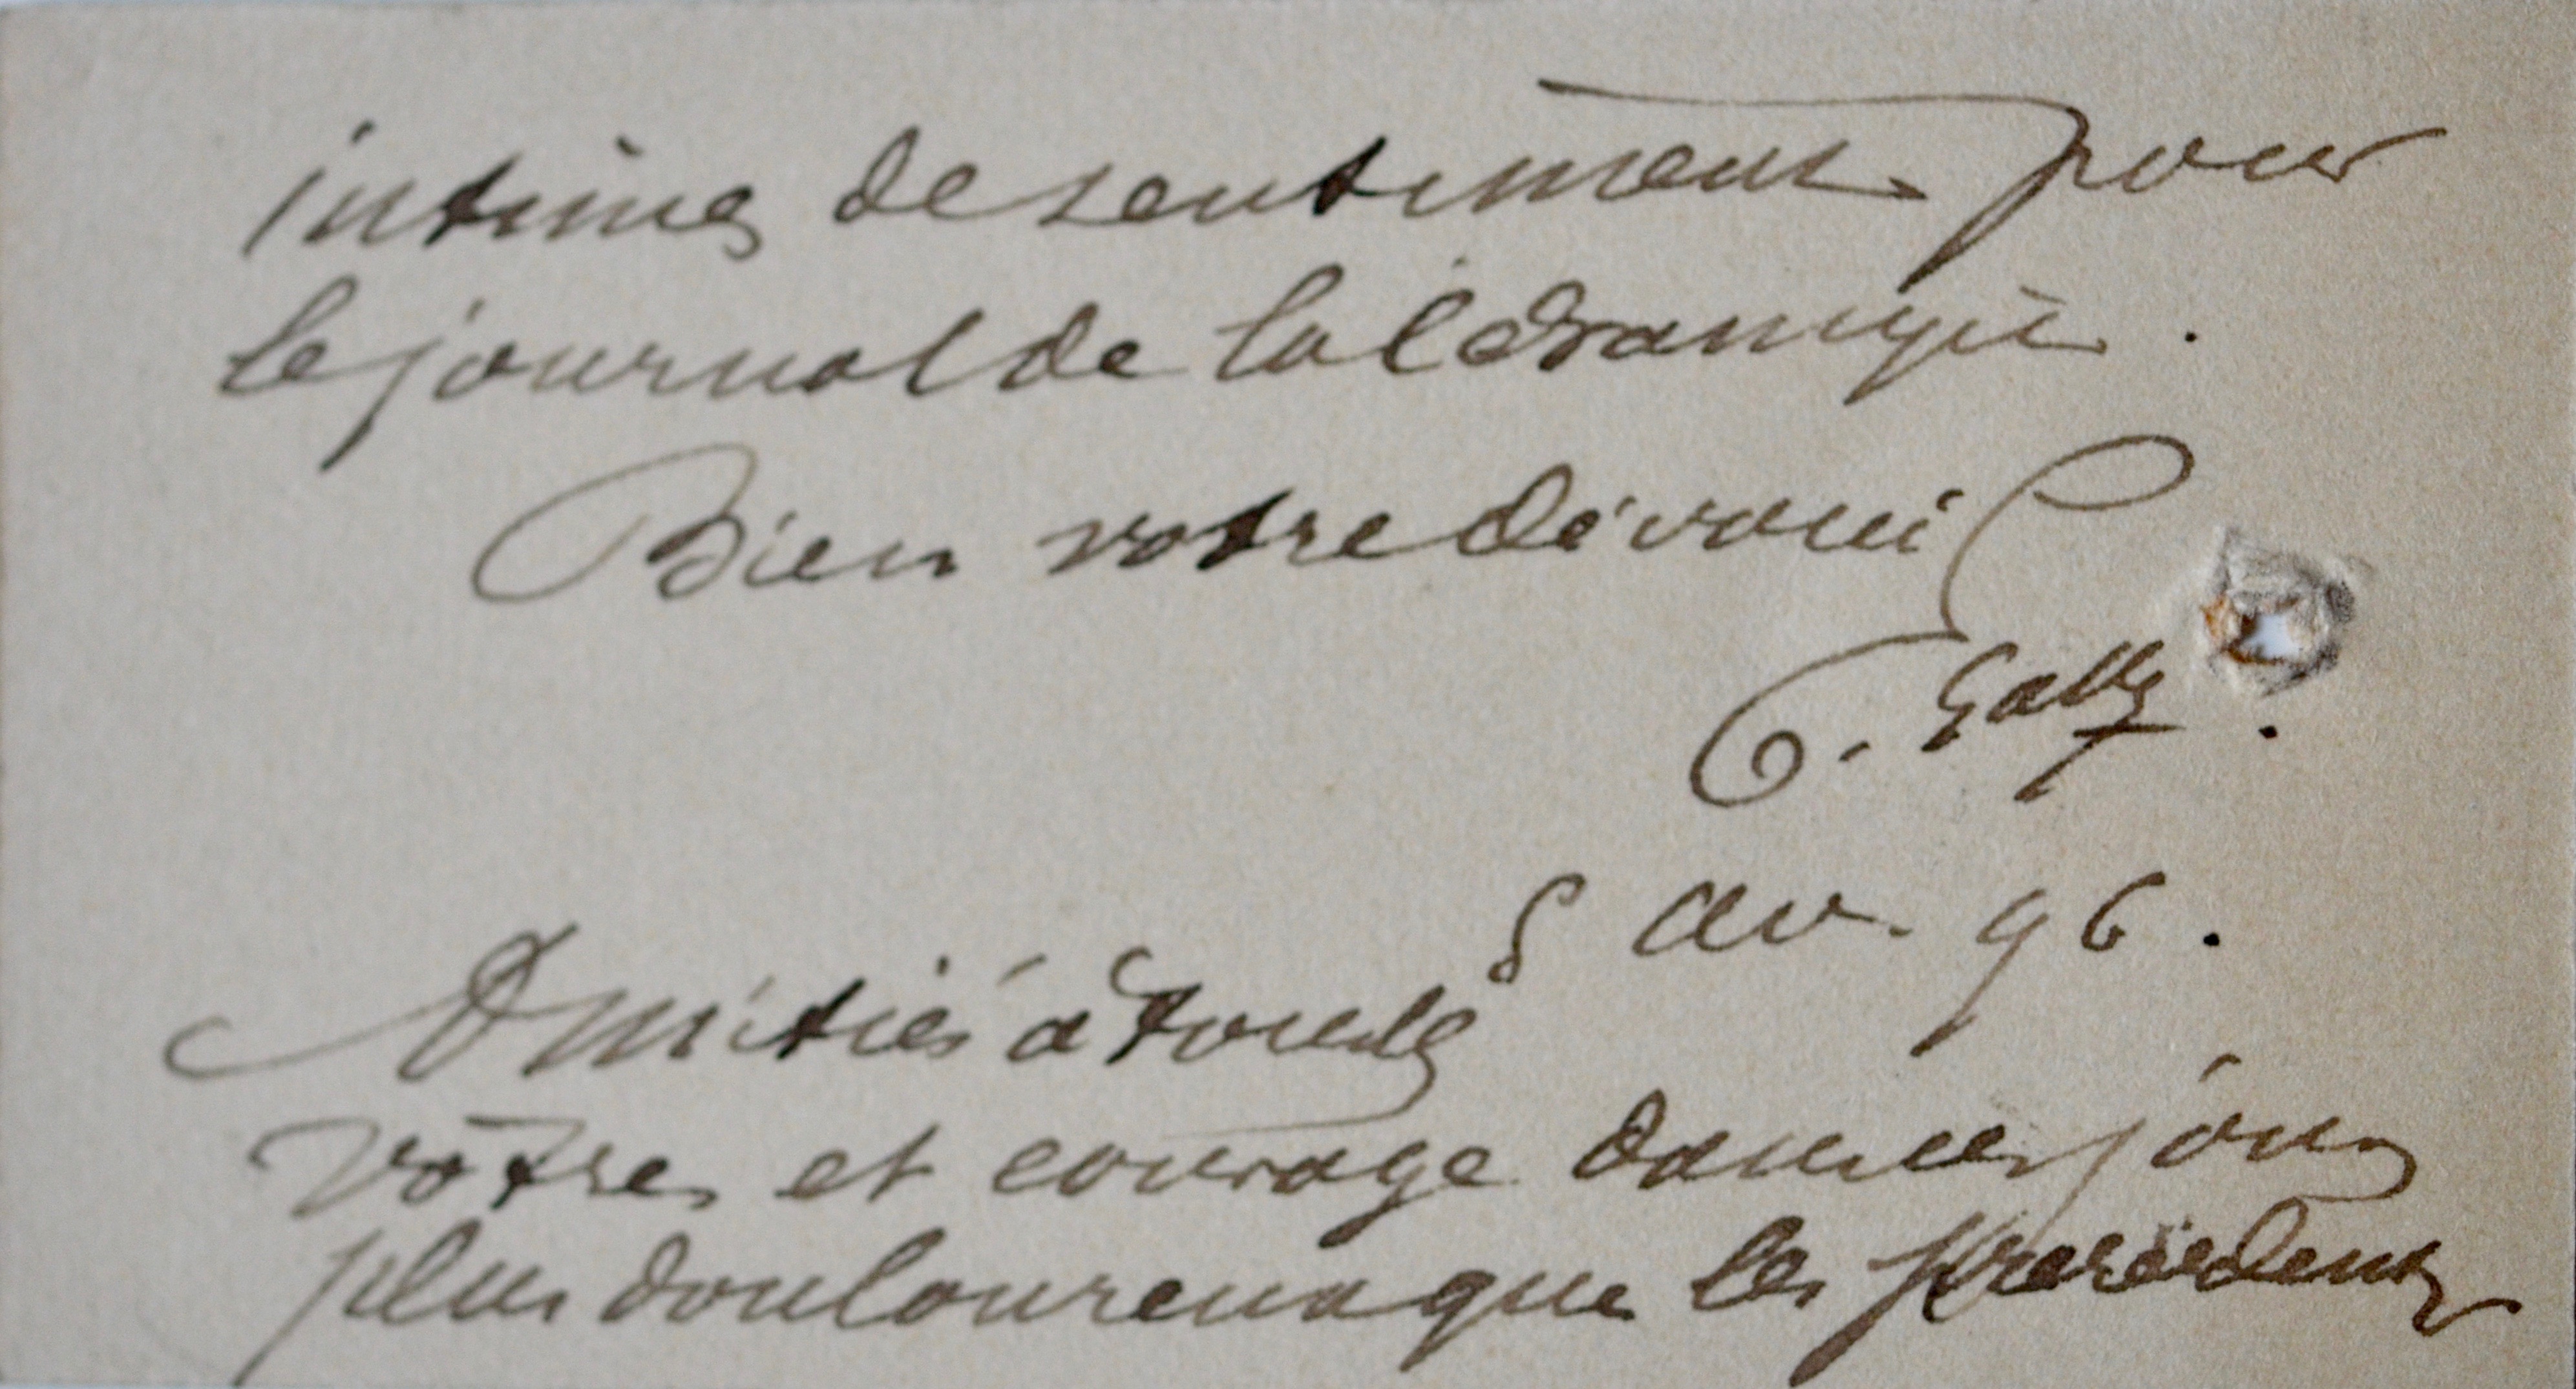 intimes de sentiments pour
le journal de la céramique.
Bien votre dévoué
E. Gallé.
8 av. 96.
Amitiés à tous les
vôtres et courage dans ces jours
plus douloureux que les précédents